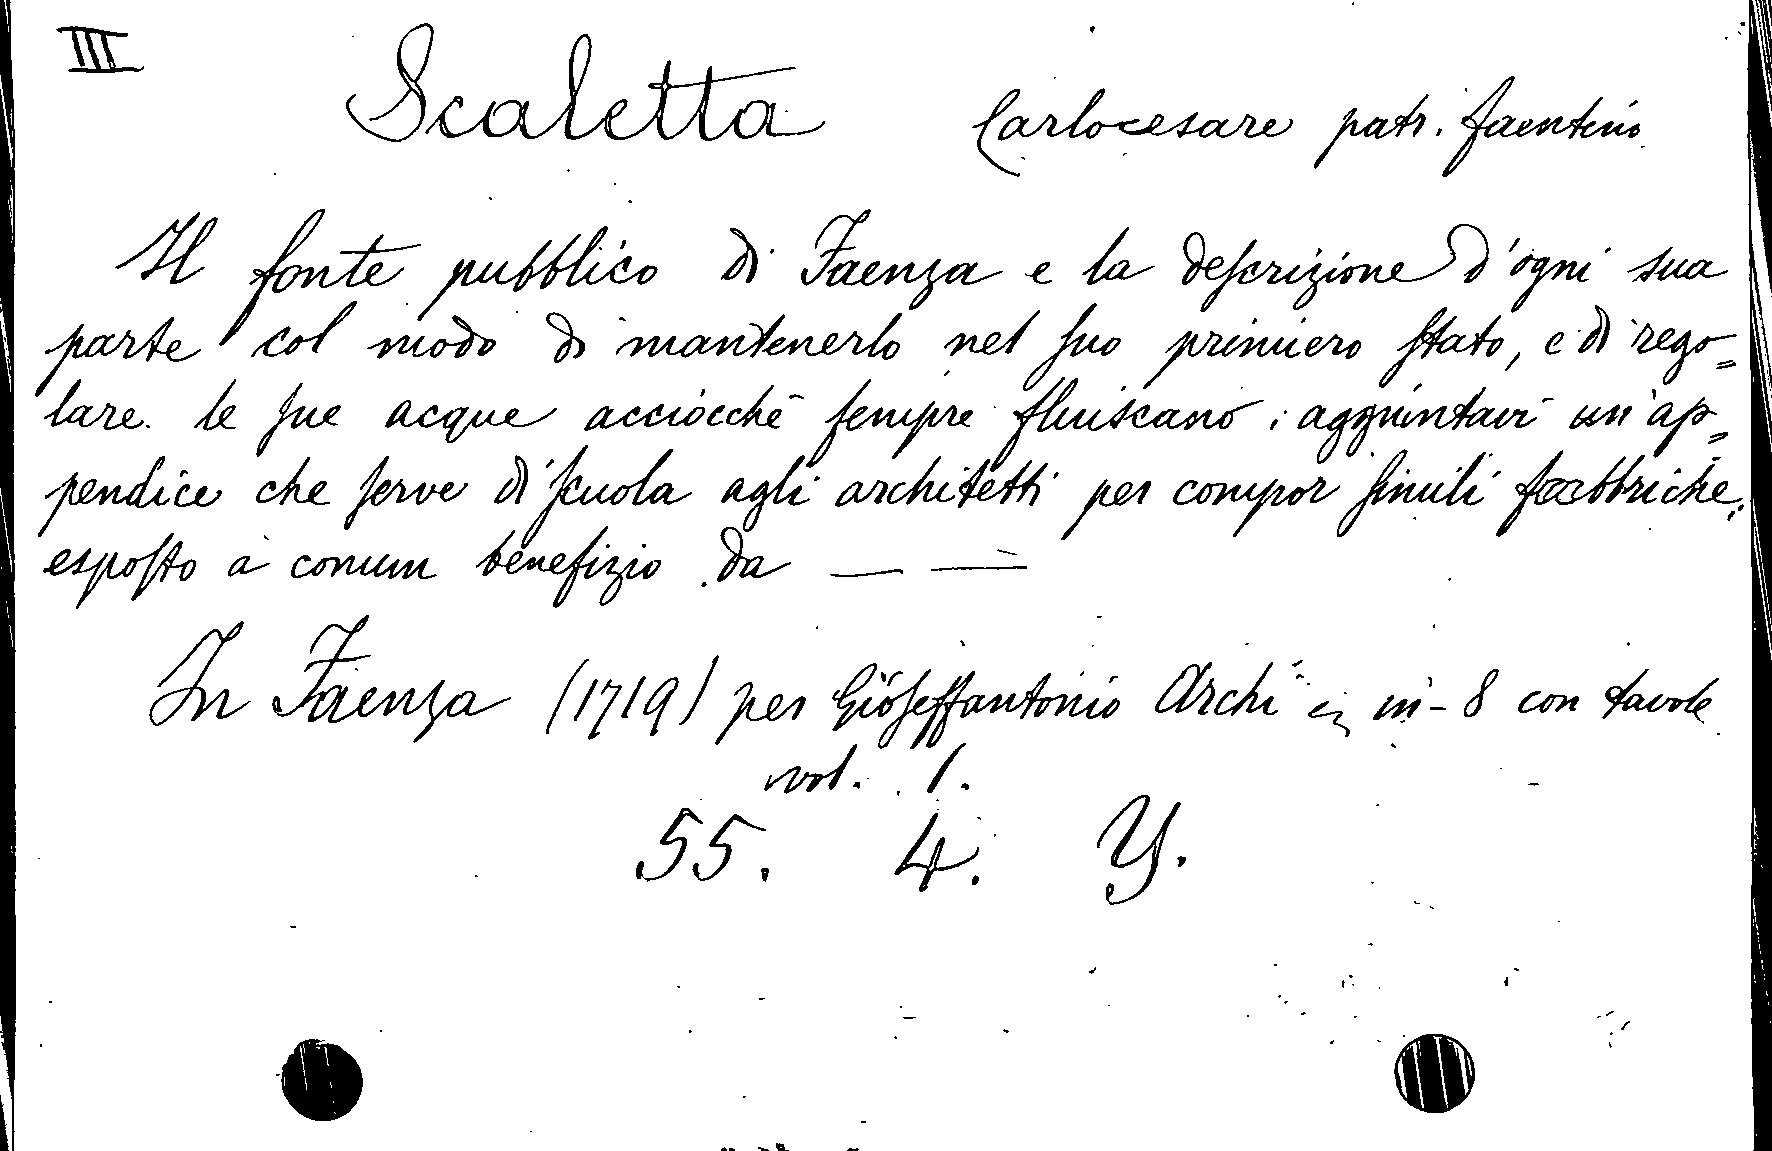 III
Scaletta Carlocesare patr. faentino
Il fonte pubblico di Faenza e la deſcrizione d'ogni sua
parte col modo di mantenerlo nel ſuo primiero ſtato, e di rego=
lare le ſue acque acciocchè ſempre fluiscano; aggiuntavi un'ap=
pendice che ſerve di ſcuola agli architetti per compor ſimili fabbriche;
espoſto a comun benefizio da — —
In Faenza (1719) per Gioſeffantonio Archi in-8 con tavole
vol. 1.
55. 4. Y.